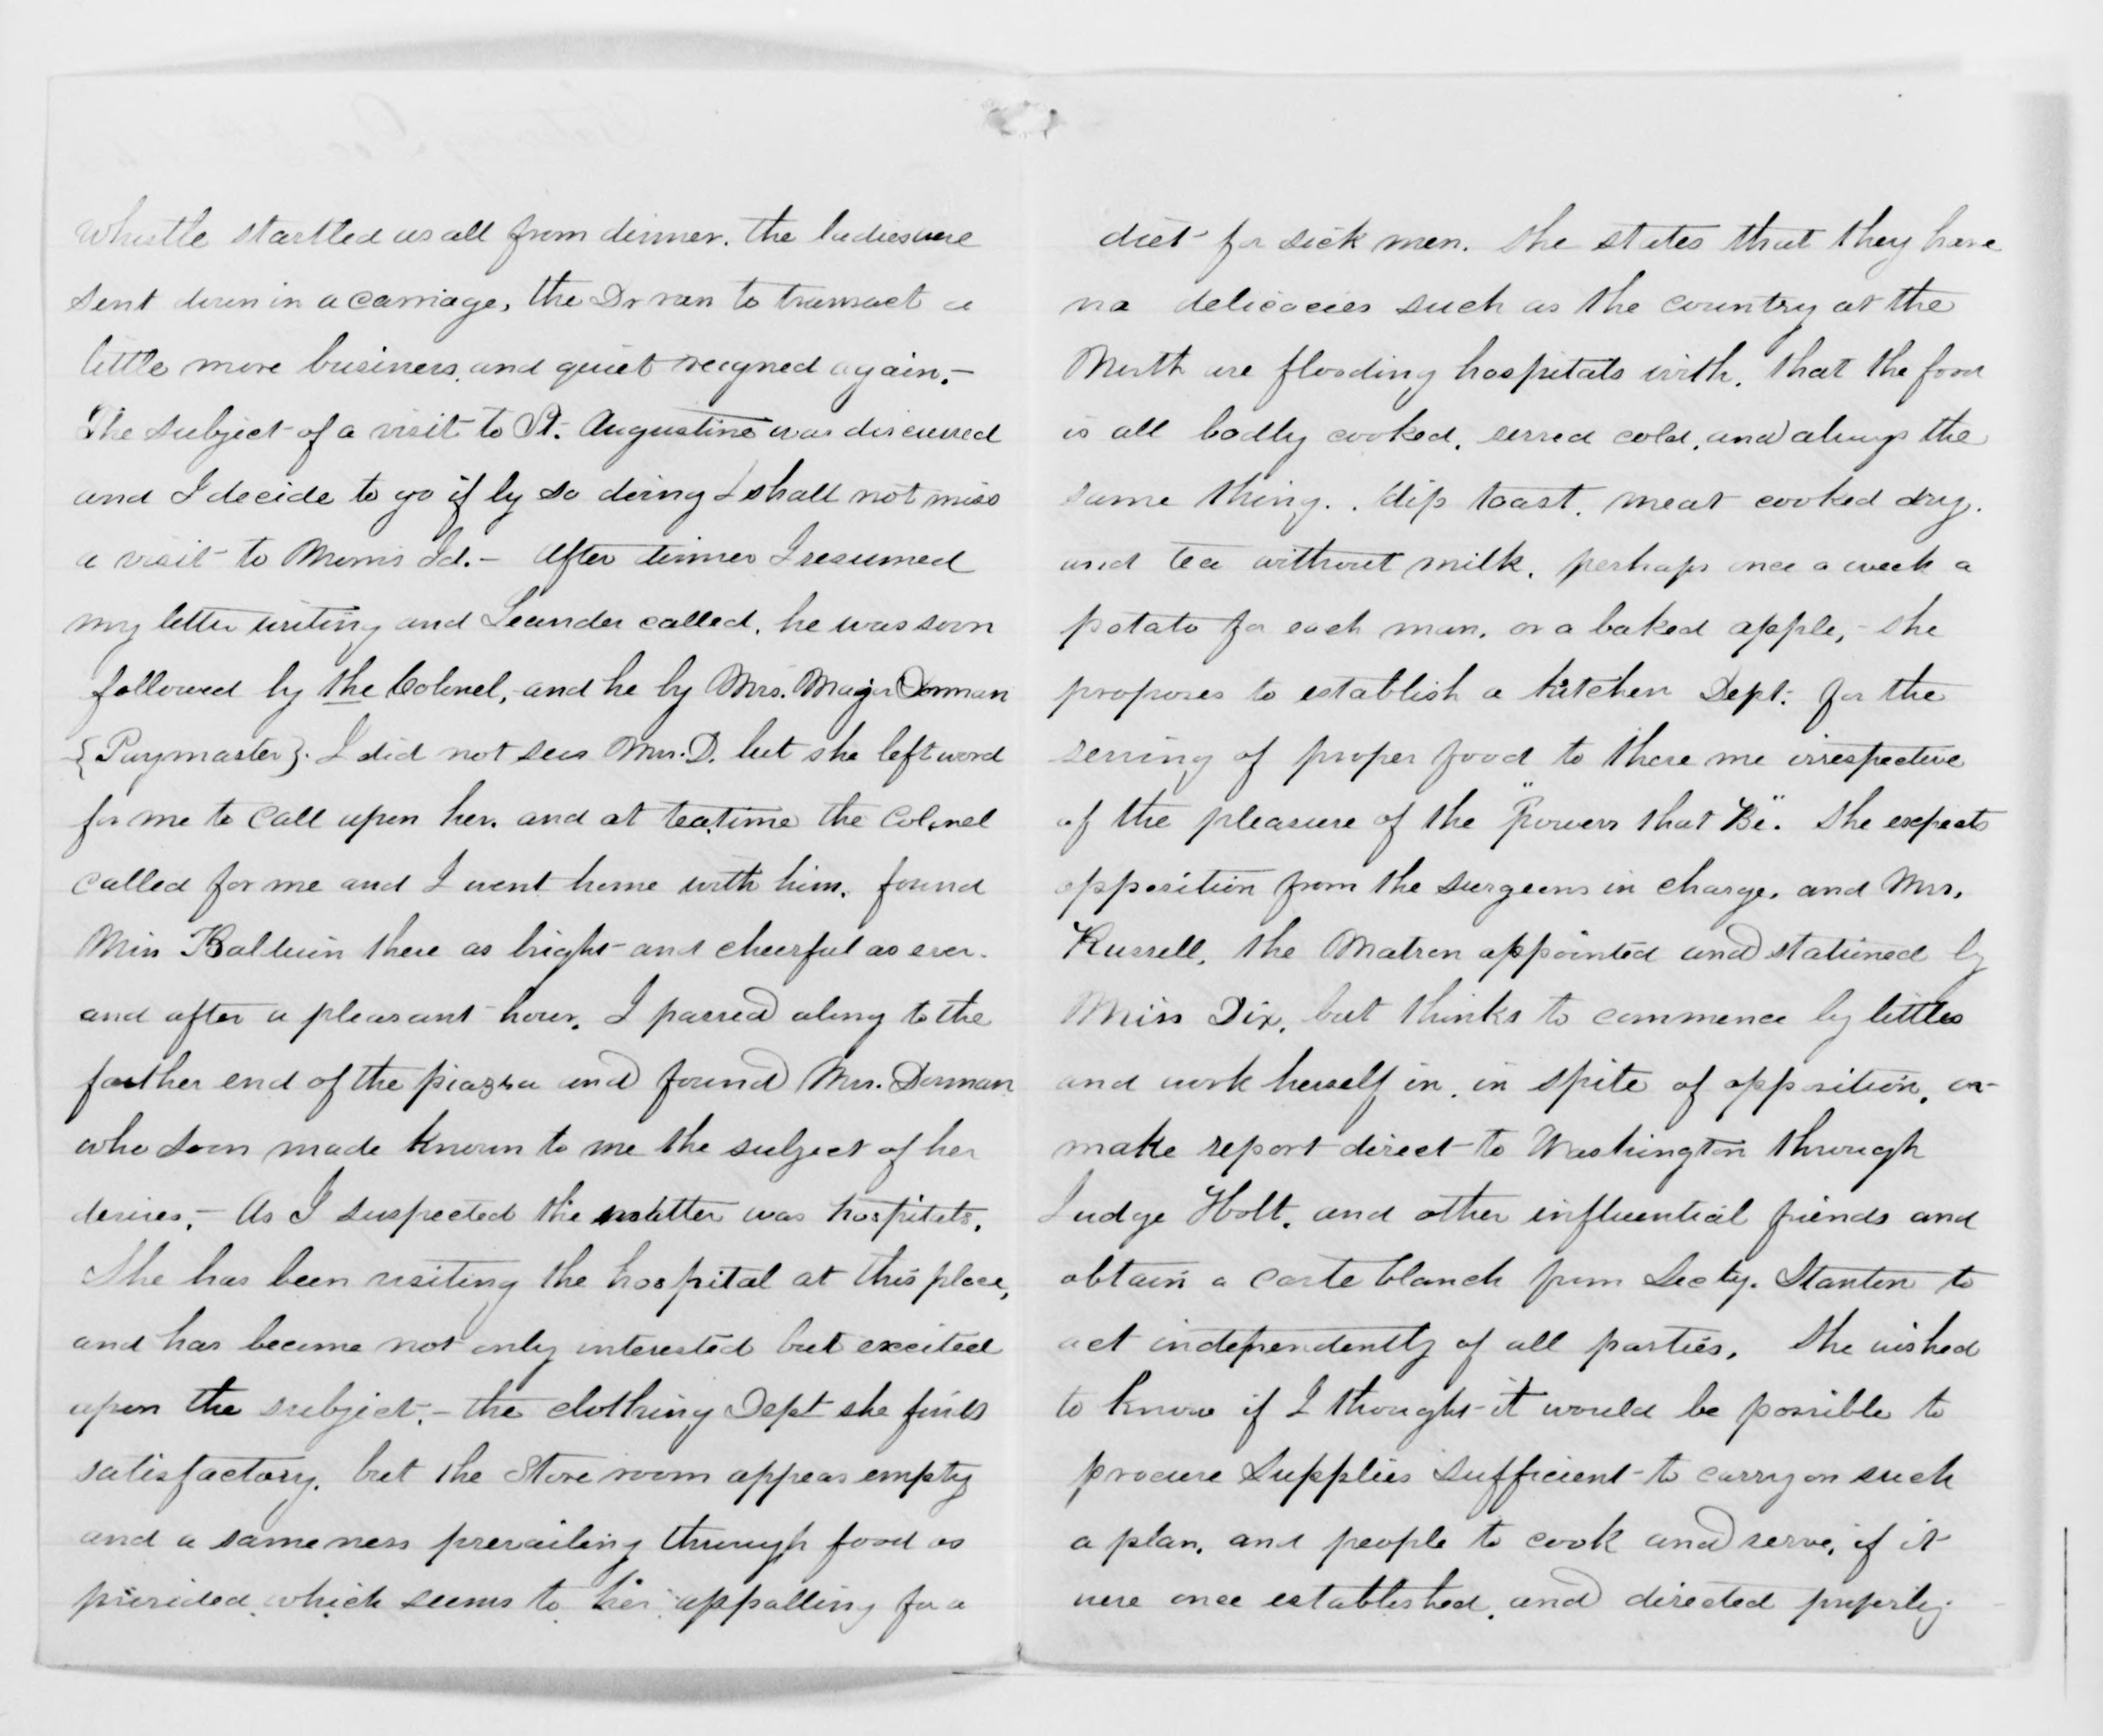 whistle startled us all from dinner. the ladies were
sent down in a carriage, the Dr ran to transact a
little more business, and quiet reigned again. –
The subject of a visit to St. Augustine was discussed
and I decide to go if by so doing I shall not miss
a visit to Morris Id. – After dinner I resumed
my letter writing and Leander called. he was soon
followed by the Colonel, and he by Mrs. Major Dorman
{Paymaster}. I did not see Mrs. D. but she left word
for me to call upon her. and at teatime the Colonel
called for me and I went home with him. found
Miss Baldwin there as bright and cheerful as ever.
and after a pleasant hour. I passed along to the
farther end of the piazza and found Mrs. Dorman
who soon made known to me the subject of her
desires. – As I suspected the matter was hospitals.
She has been visiting the hospital at this place,
and has become not only interested but excited
upon the subject. – the clothing Dept she finds
satisfactory. but the Store room appears empty
and a sameness prevailing through food as
provided, which seems to her appalling for a
diet for sick men. She states that they have
no delicacies such as the country at the
North are flooding hospitals with. that the food
is all badly cooked. served cold, and always the
same thing. . dip toast. meat cooked dry.
and tea without milk. perhaps once a week a
potato for each man. or a baked apple, – she
proposes to establish a kitchen Dept. for the
serving of proper food to these me irrespective
of the pleasure of the "Powers that Be". She expects
opposition from the surgeons in charge. and Mrs.
Russell. the Matron appointed and stationed by
Miss Dix. but thinks to commence by littles
and work herself in. in spite of opposition. or
make report direct to Washington through
Judge Holt. and other influential friends and
obtain a carte blanch from Secty. Stanton to
act independently of all parties. She wished
to know if I thought it would be possible to
procure supplies sufficient to carry on such
a plan. and people to cook and serve, if it
were once established, and directed properly